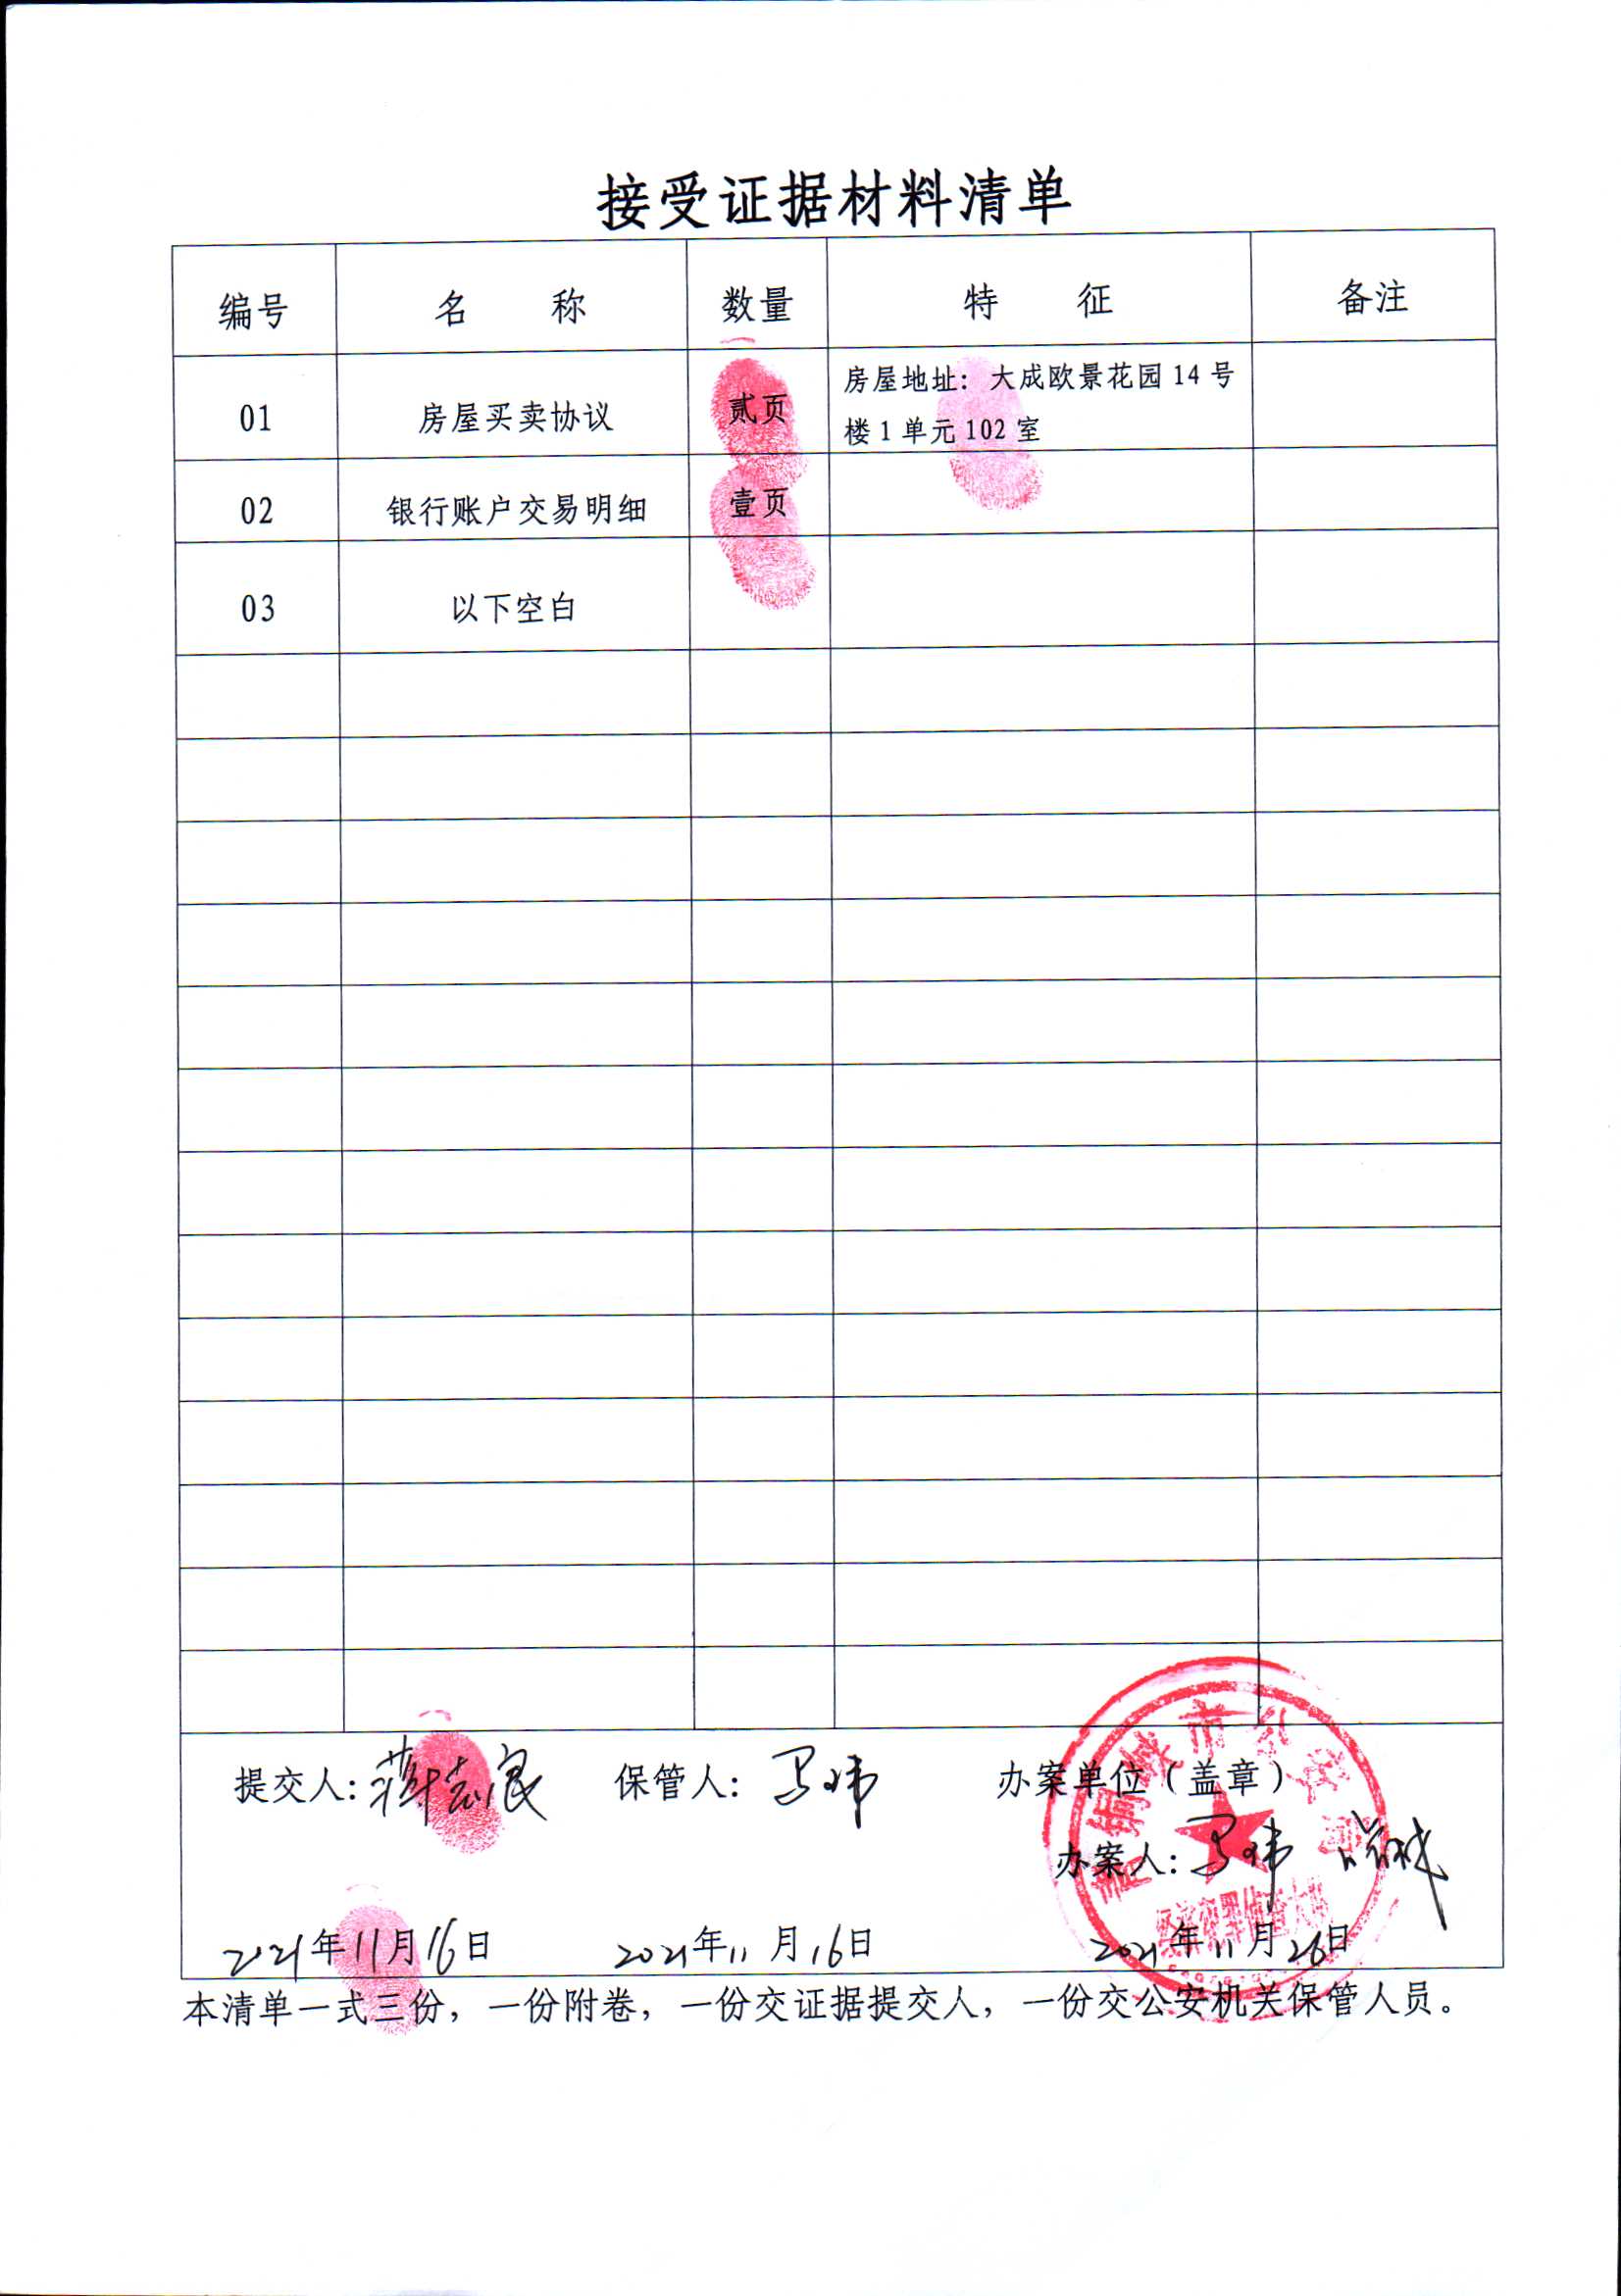 接受证据材料清单
编号 名 称 数量 特 征 备注
01 房屋买卖协议 贰页 房屋地址：大成欧景花园14号
楼1单元102室
02 银行账户交易明细 壹页
03 以下空白
提交人：蒋志良 保管人：马玮 办案单位（盖章）
办案人：马玮
2021年11月16日 2021年11月16日 2021年11月26日
本清单一式三份，一份附卷，一份交证据提交人，一份交公安机关保管人员。